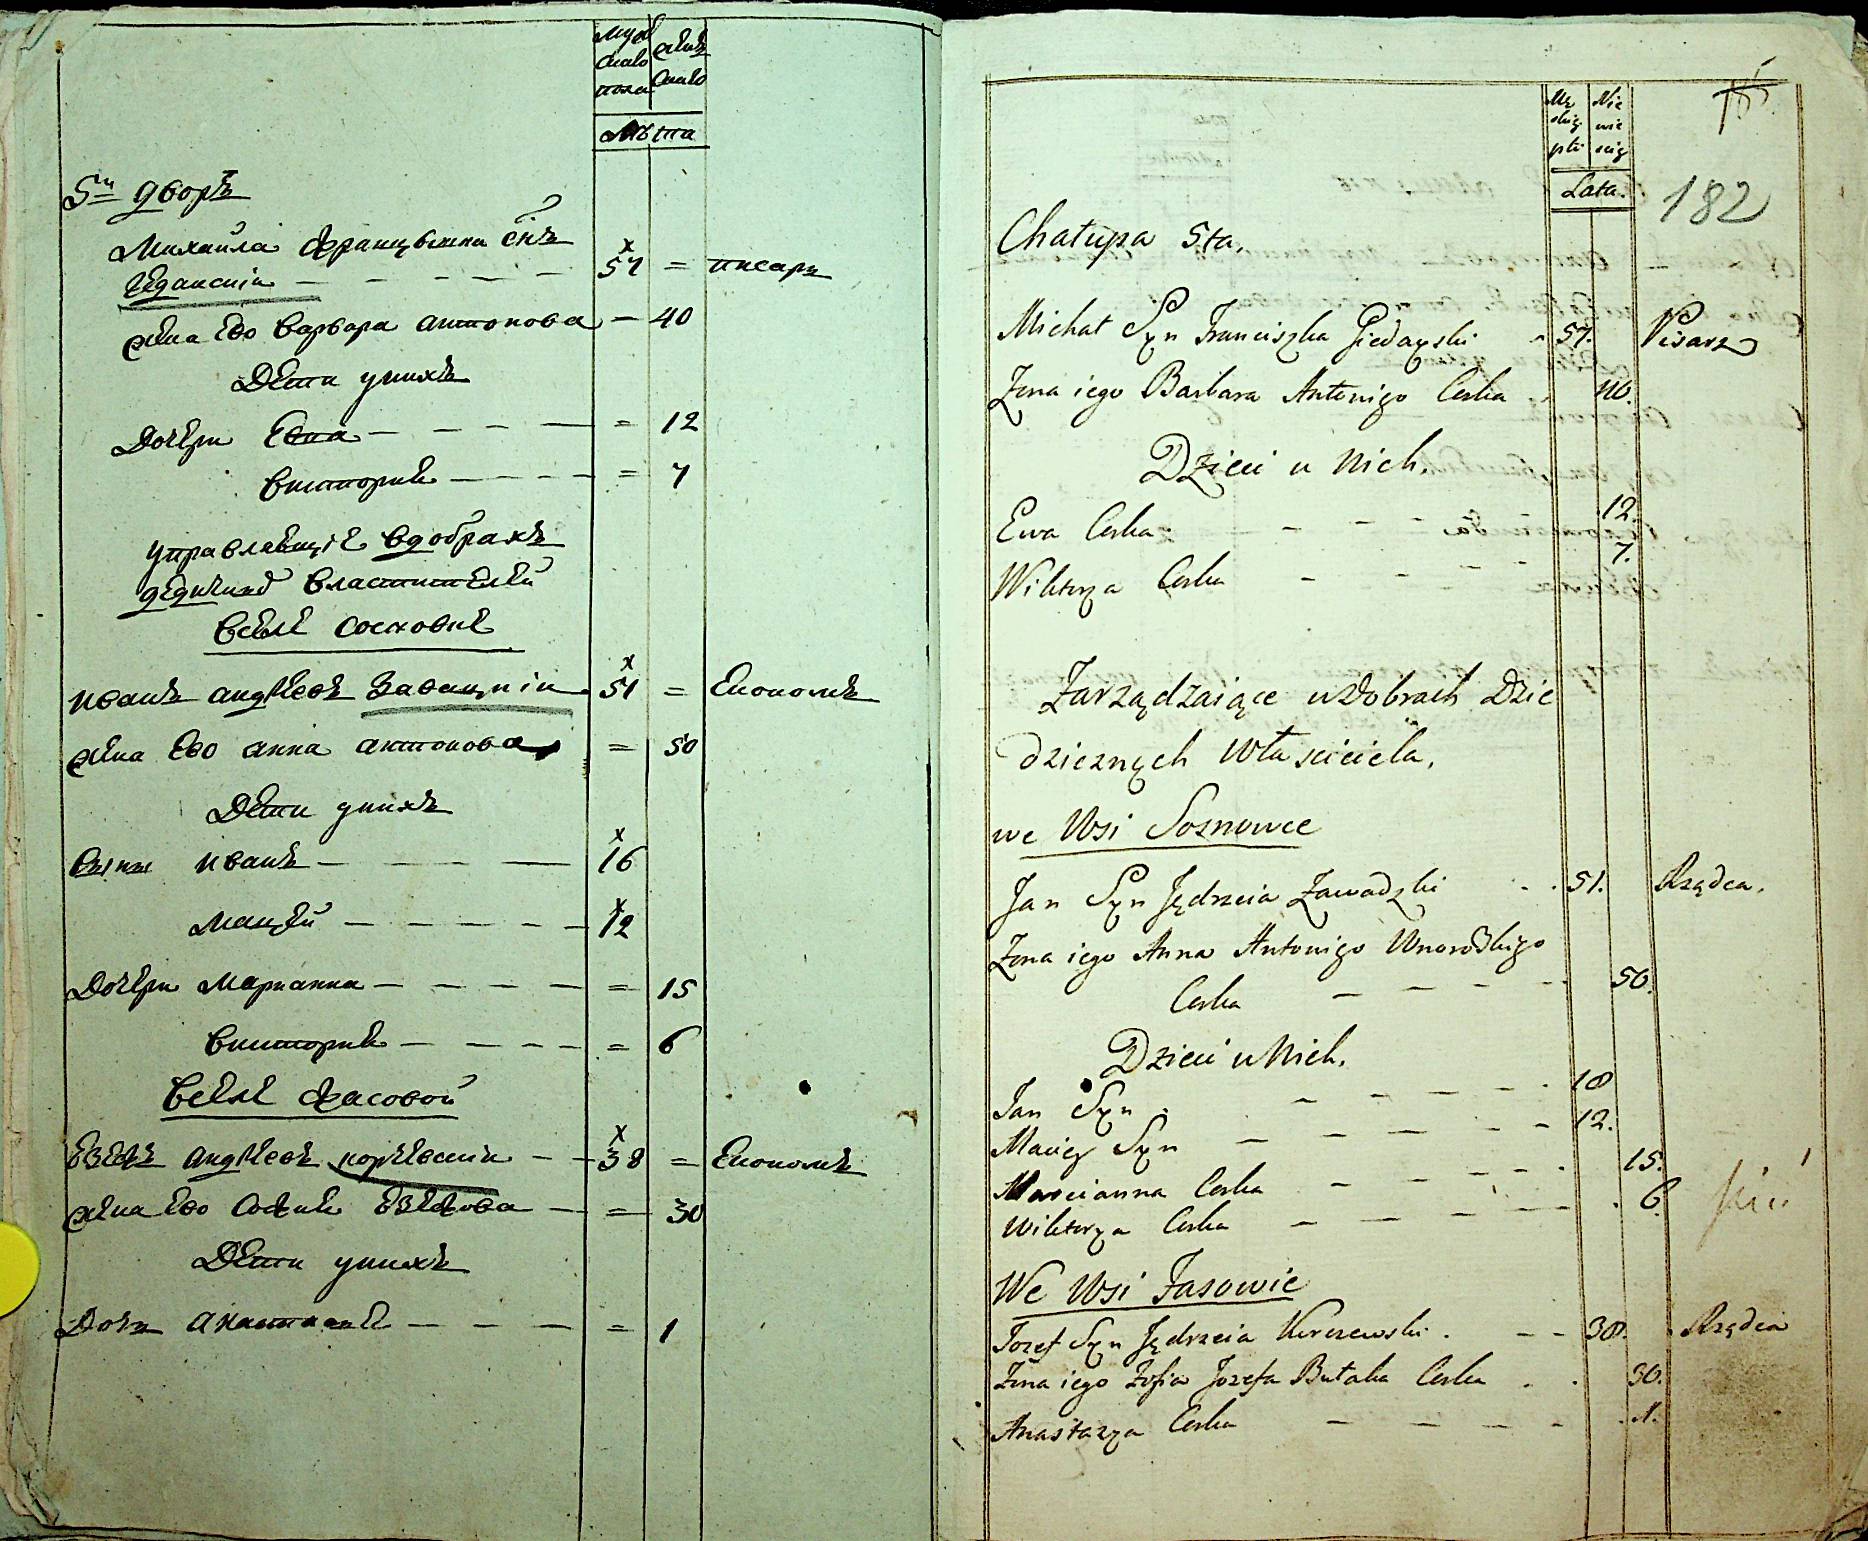 Мужскаго пола
Женскаго
Лѣта
5й дворъ
Михайла Францышка сынъ
Гедански 57 = писарь
жена его Варвара Антонова — 40
Дети у нихъ
Дочери Евва — = 12
Викторие — = 7
Управляющіе в добрахъ
дедичныхъ властителей
В селе Сосновце
Иванъ Андреевъ Завацкій 51 = Економъ
жена его Анна Антонова = 50
Дети у нихъ
Сыны Иванъ — 16
Мацей — 12
Дочери Марианна — = 15
Викторие — = 6
В селе Фасовой
Езефъ Андреевъ Корчевский — 38 = Економъ
жена его Софие Езефова — = 30
Дети у нихъ
Дочь Анастасие — = 1
182
Męskiey płci
Niewieściey
Lata.
Chałupa 5ta.
Michał Syn Franciszka Giedayski 57. Pisarz
Zona iego Barbara Antoniego Corka 40.
Dzieci u Nich.
Ewa Corka 12.
Wiktorya Corka 7.
Zarządzaiące w Dobrach Dzie
dzicznych Właściciela.
we Wsi Sosnowce
Jan Syn Jędrzeia Zawadzki 51. Rządca.
Zona iego Anna Antoniego Unorodzkiego
Corka 50.
Dzieci u Nich.
Jan Syn 18
Maciey Syn 12.
Maryianna Corka 15.
Wiktorya Corka 6.
We Wsi Fasowie
Jozef Syn Jędrzeia Korczewski 38. Rządca
Zona iego Zofia Jozefa Butaka Corka 30.
Anastazya Corka 1.